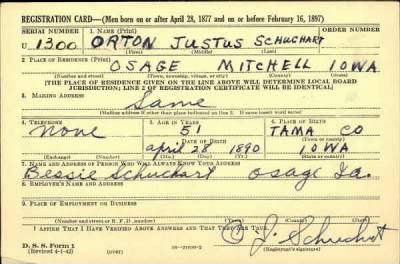 REGISTRATION CARD—(Men born on or after April 28, 1877 and on or before February 16, 1897)
SERIAL NUMBER 1. NAME (Print) ORDER NUMBER
U 1300 ORTON JUSTUS SCHUCHART
(First) (Middle) (Last)
2. PLACE OF RESIDENCE (Print)
OSAGE MITCHELL IOWA
(Number and street) (Town, township, village, or city) (County) (State)
[THE PLACE OF RESIDENCE GIVEN ON THE LINE ABOVE WILL DETERMINE LOCAL BOARD
JURISDICTION; LINE 2 OF REGISTRATION CERTIFICATE WILL BE IDENTICAL]
3. MAILING ADDRESS
Same
[Mailing address if other than place indicated on line 2. If same insert word same]
4. TELEPHONE 5. AGE IN YEARS 6. PLACE OF BIRTH
None 51 TAMA CO
DATE OF BIRTH (Town or county)
April 28 1890 IOWA
(Exchange) (Number) (Mo.) (Day) (Yr.) (State or country)
7. NAME AND ADDRESS OF PERSON WHO WILL ALWAYS KNOW YOUR ADDRESS
Bessie Schuchart Osage Ia.
8. EMPLOYER'S NAME AND ADDRESS
9. PLACE OF EMPLOYMENT OR BUSINESS
(Number and street or R. F. D. number) (Town) (County) (State)
I AFFIRM THAT I HAVE VERIFIED ABOVE ANSWERS AND THAT THEY ARE TRUE.
D. S. S. Form 1
(Revised 4-1-42) (over) 16—21630-2 (Registrant's signature)
O J. Schuchart